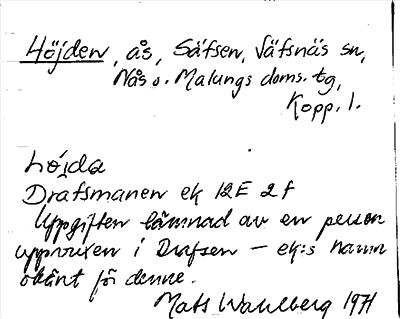 Höjden, ås, Säfsen, Säfsnäs sn,
Nås o. Malungs doms. tg,
Kopp. l.
hö̀jda
Drafsmanen ek 12E 2f
Uppgiften lämnad av en person
uppvuxen i Drafsen – ek:s namn
okänt för denne.
Mats Wahlberg 1971